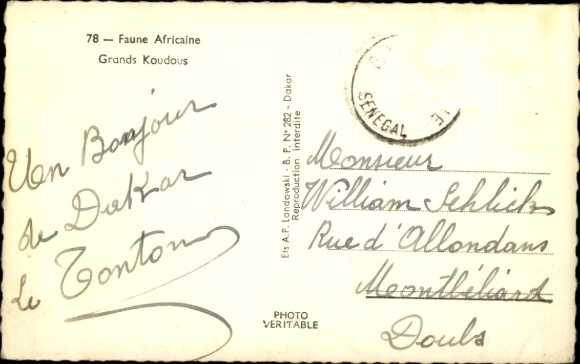 78 — Faune Africaine
Grands Koudous
Un Bonjour
de Dakar
Le Tonton
Ets A.P. Landowski - B. P. N° 282 - Dakar
Reproduction interdite
PHOTO
VERITABLE
SENEGAL
Monsieur
William Schlick
Rue d'Allondans
Montbéliard
Doubs